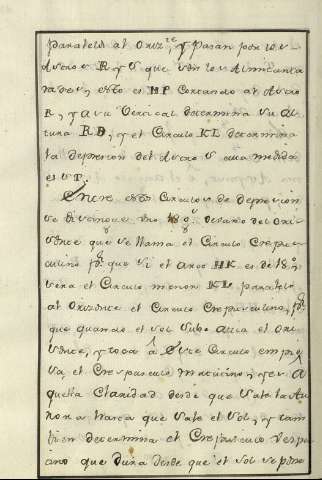 paralelo al Orizte, y pasan por los
Astros R y S que son los Almicanta
radas, esto es HP Cortando al Astro
R, y a su Vertical determina su al
tura RD, y el Circulo KL determina
la depresion del Astro S cuia medida
es ST.
Entre estos Circulos de depresion
se distingue uno 18 gs devajo del Ori
sonte que se llama el Circulo Crepus
culino pq que si el arco HK es de 18 gs
sera el Circulo menor KL paralelo
al Orizonte el Circulo Crepusculino, pq
que quando el Sol sube acia el Ori
sonte, y toca â Este Circulo empie
sa, el Crepusculo Matutino, y es A
quella Claridad desde que sale la Au
rora hasta que sale el Sol, y tam
bien determina el Crepusculo Vesper
tino que dura desde que el Sol se pone